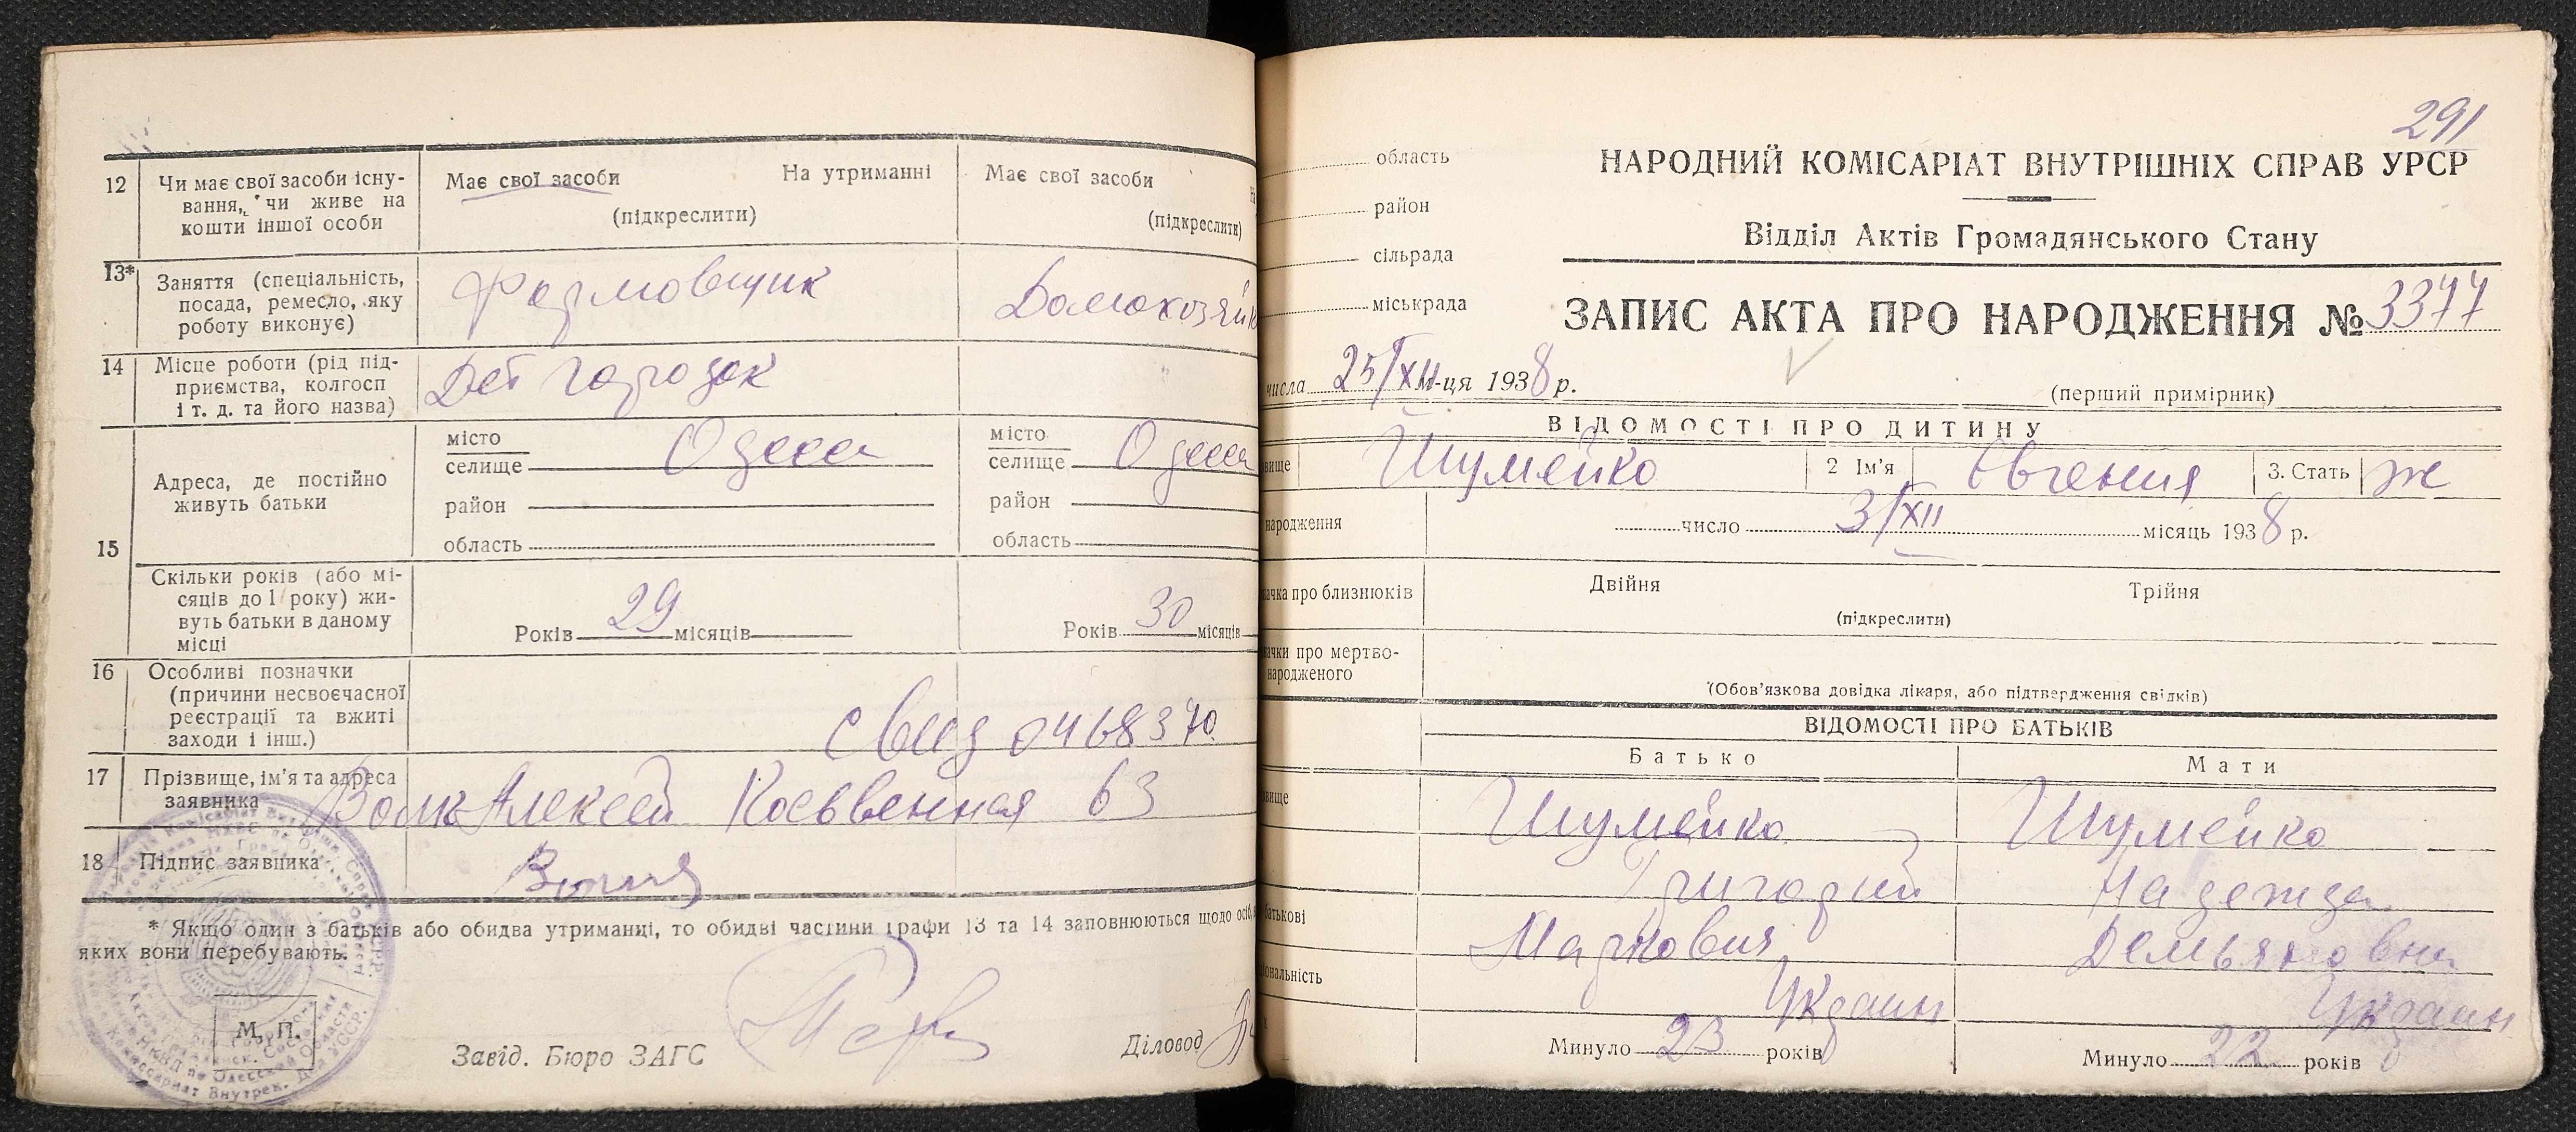 12 Чи має свої засоби існу-
вання, чи живе на
кошти іншої особи
Має свої засоби На утриманні
(підкреслити)
Має свої засоби
(підкреслити)
13* Заняття (спеціальність,
посада, ремесло, яку
роботу виконує)
Формовщик
Домохозяйк
14 Місце роботи (рід під-
приємства, колгосп
і т. д. та його назва)
Дет городок
15
Адреса, де постійно
живуть батьки
місто
селище Одесса
район
область
місто
селище Одесса
район
область
Скільки років (або мі-
сяців до 1 року) жи-
вуть батьки в даному
місці
Років 29 місяців
Років 30 місяців
16 Особливі позначки
(причини несвоєчасної
реєстрації та вжиті
заходи і інш.)
свид 0468370
17 Прізвище, ім'я та адреса
заявника
Волк Алексей Косвенная 63
18 Підпис заявника
* Якщо один з батьків або обидва утриманці, то обидві частини графи 13 та 14 заповнюються щодо осіб,
яких вони перебувають.
М. П.
Завід. Бюро ЗАГС
Діловод
291
область
район
сільрада
міськрада
НАРОДНИЙ КОМІСАРІАТ ВНУТРІШНІХ СПРАВ УРСР
Відділ Актів Громадянського Стану
ЗАПИС АКТА ПРО НАРОДЖЕННЯ № 3377
числа 25/XII м-ця 1938 р.
(перший примірник)
ВІДОМОСТІ ПРО ДИТИНУ
вище Шумейко 2 Ім'я Евгения 3. Стать ж
народження
число 3/XII місяць 1938 р.
ачка про близнюків
Двійня Трійня
(підкреслити)
ачки про мертво-
народженого
(Обов'язкова довідка лікаря, або підтвердження свідків)
ВІДОМОСТІ ПРО БАТЬКІВ
Батько Мати
вище Шумейко Шумейко
Григорий Надежда
батькові Маркович Демьяновна
ціональність Украин Украин
Минуло 23 років
Минуло 22 років